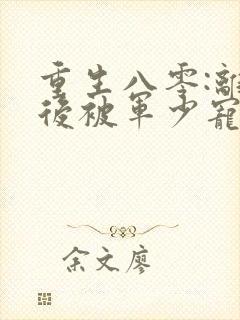 重生八零:離
後被軍少寵
余文廖